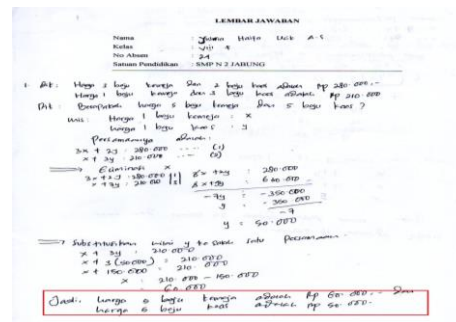 LEMBAR JAWABAN
Nama :
Kelas : VIII
No Absen : 24
Satuan Pendidikan : SMP N 2 JABUNG
1. Dit : Harga 3 baju kemeja dan 2 baju kaos adalah Rp 280.000,-
Harga 1 baju kemeja dan 3 baju kaos adalah Rp 210.000
Dit : Berapakah harga 5 baju kemeja dan 5 baju kaos ?
Mis : Harga 1 baju kemeja : x
harga 1 baju kaos : y
Persamaannya adalah :
3x + 2y : 280.000 .... (1)
x + 3y : 210.000 .... (2)
Eliminasi x
3x + 2y : 280.000 |1| 3x + 2y : 280.000
x + 3y : 210.000 |3|
- 7y = - 350.000
y = - 350.000
- 7
y = 50.000
Substitusikan nilai y ke salah satu persamaan
x + 3y : 210.000
x + 3 (50.000) : 210.000
x + 150.000 : 210.000
x : 210.000 - 150.000
: 60.000
Jadi. harga baju kemeja adalah Rp 60.000.- dan
harga baju kaos adalah Rp 50.000.